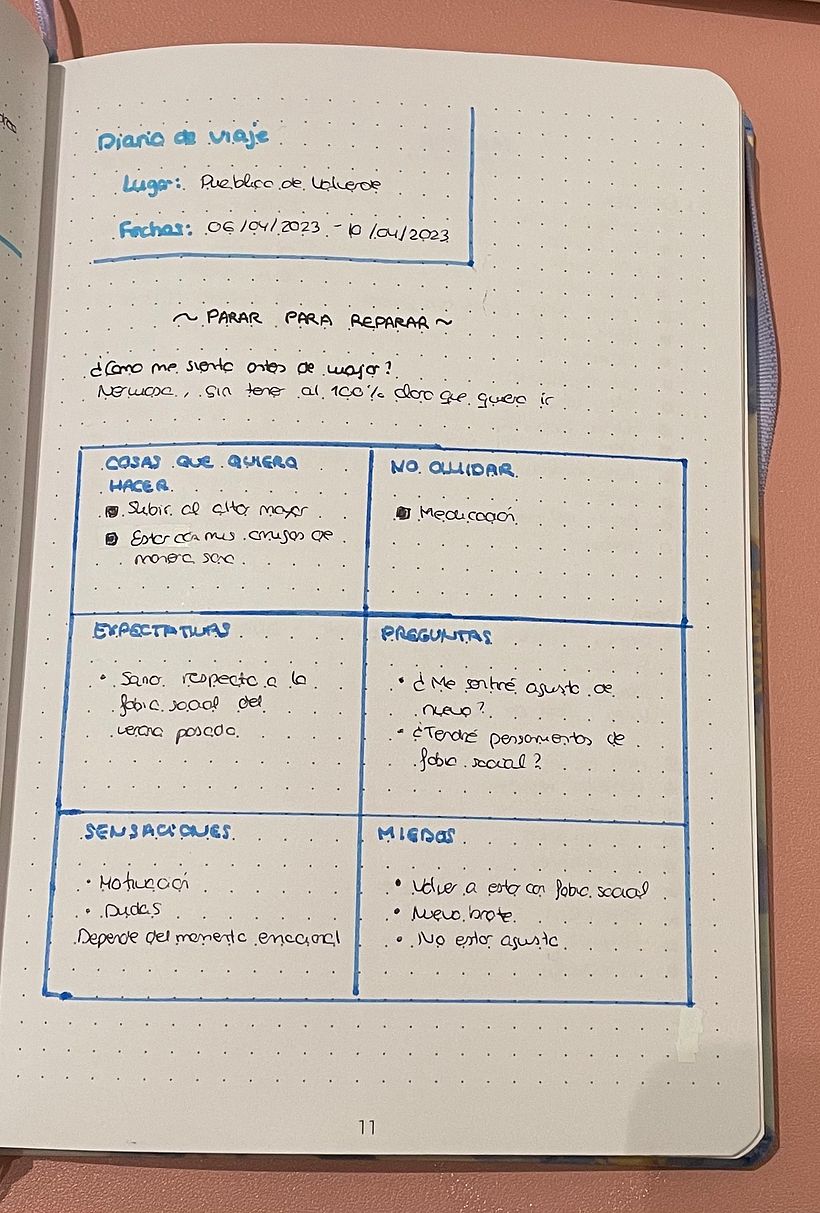 Diario de viaje
Lugar: Pueblico de Valverde
Fechas: 06/04/2023 - 10/04/2023
~ PARAR PARA REPARAR ~
¿Cómo me siento antes de viajar?
Nerviosa, sin tener al 100% claro que quiero ir
COSAS QUE QUIERO
HACER
Subir al alto mayor
Estar con mis amigos de
manera sana
NO OLVIDAR
Medicación
EXPECTATIVAS
• Sano respecto a la
fobia social del
verano pasado
PREGUNTAS
• ¿Me sentiré agusto de
nuevo?
• ¿Tendré pensamientos de
fobia social?
SENSACIONES
• Motivación
• Dudas
Depende del momento emocional
MIEDOS
• Volver a estar con fobia social
• Nuevo brote
• No estar agusto
11